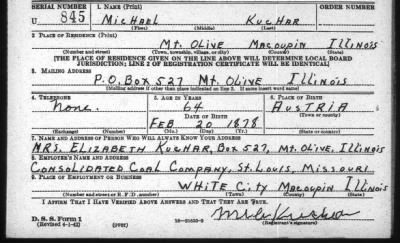 SERIAL NUMBER 1. NAME (Print) ORDER NUMBER
U 845 MICHAEL KUCHAR
(First) (Middle) (Last)
2. PLACE OF RESIDENCE (Print)
MT. OLIVE MACOUPIN ILLINOIS
(Number and street) (Town, township, village, or city) (County) (State)
[THE PLACE OF RESIDENCE GIVEN ON THE LINE ABOVE WILL DETERMINE LOCAL BOARD
JURISDICTION; LINE 2 OF REGISTRATION CERTIFICATE WILL BE IDENTICAL]
3. MAILING ADDRESS
P.O. BOX 527 MT. OLIVE ILLINOIS
[Mailing address if other than place indicated on line 2. If same insert word same]
4. TELEPHONE 5. AGE IN YEARS 6. PLACE OF BIRTH
none. 64 AUSTRIA
DATE OF BIRTH (Town or county)
FEB 20 1878
(Exchange) (Number) (Mo.) (Day) (Yr.) (State or country)
7. NAME AND ADDRESS OF PERSON WHO WILL ALWAYS KNOW YOUR ADDRESS
MRS. ELIZABETH KUCHAR, BOX 527, MT. OLIVE, ILLINOIS
8. EMPLOYER'S NAME AND ADDRESS
CONSOLIDATED COAL COMPANY, ST. LOUIS, MISSOURI.
9. PLACE OF EMPLOYMENT OR BUSINESS
WHITE CITY MACOUPIN ILLINOIS
(Number and street or R. F. D. number) (Town) (County) (State)
I AFFIRM THAT I HAVE VERIFIED ABOVE ANSWERS AND THAT THEY ARE TRUE.
D. S. S. Form 1
(Revised 4-1-42) (over) (Registrant's signature)